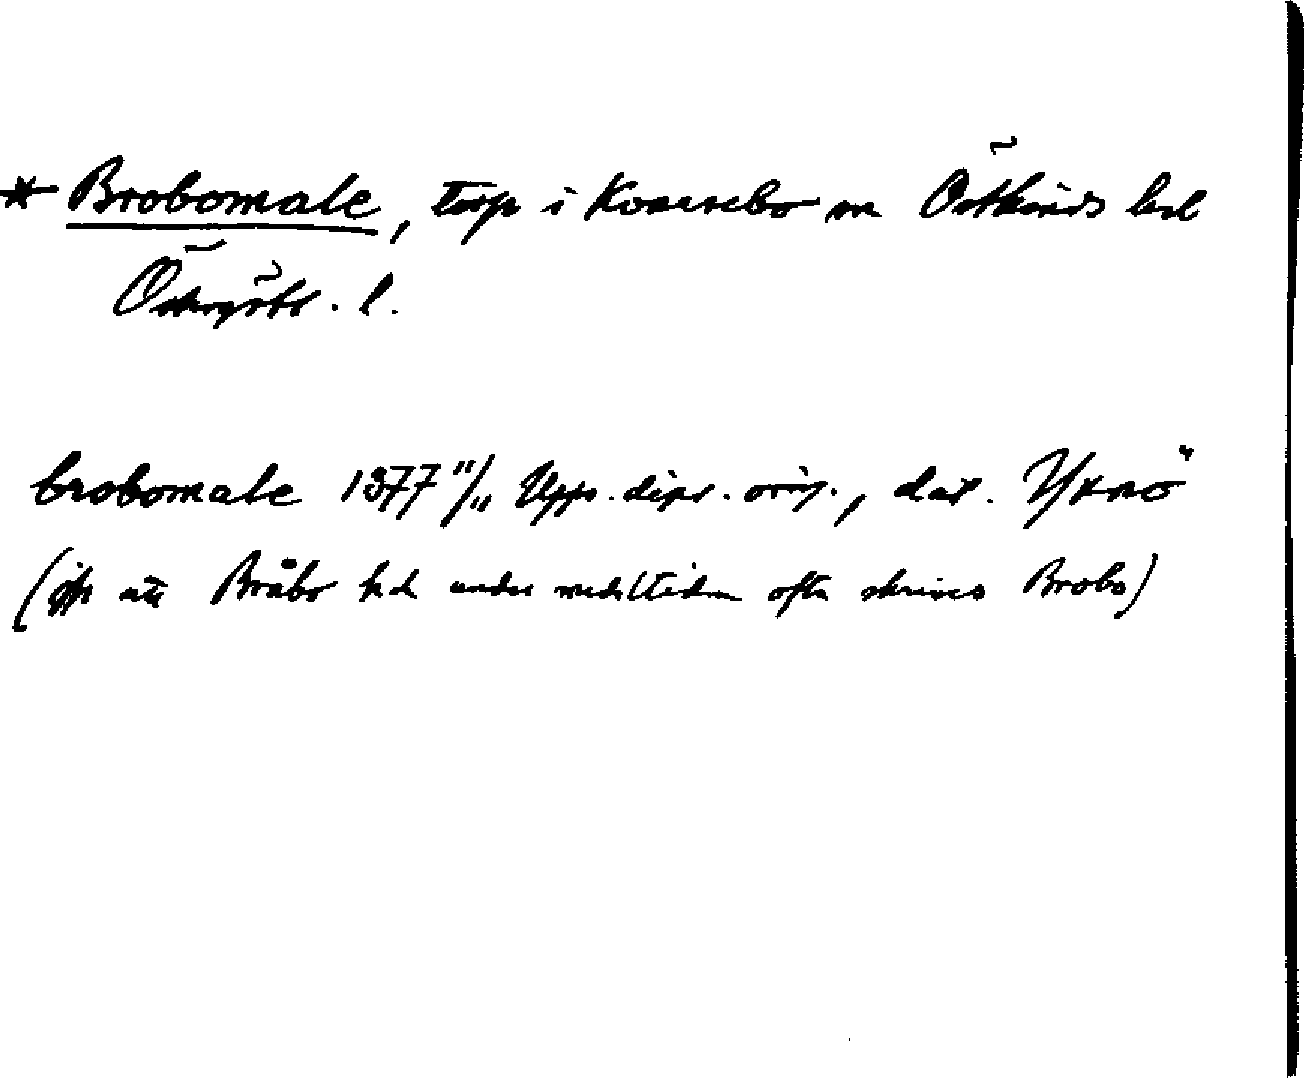 * Brobomale, torp i Kvarsebo sn Östkinds hd
Östergötl. l.
brobomale 1377 11/11 Upps. dipl. orig., dat. Yxnö
(jfr att Bråbo hd under medeltiden ofta skrives Brobo)